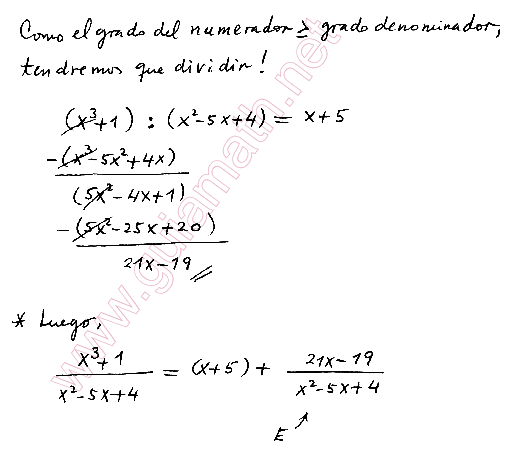 Como el grado del numerador ≥ grado denominador,
tendremos que dividir!
(x³+1) : (x²-5x+4) = x+5
-(x³-5x²+4x)
(5x²-4x+1)
-(5x²-25x+20)
21x-19
* Luego,
x³+1 / x²-5x+4 = (x+5) + 21x-19 / x²-5x+4
E
www.guiamath.net